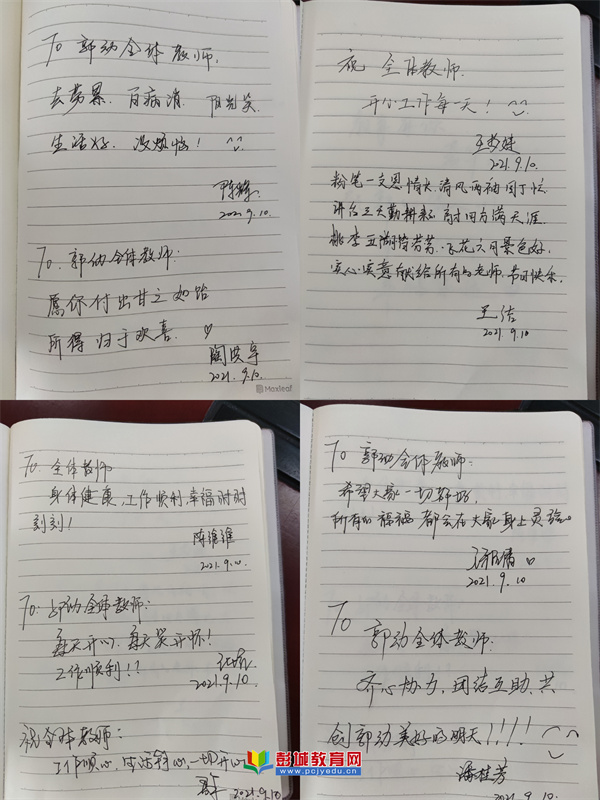 To 郭幼全体教师:
去劳累. 百病消. 阳光笑
生活好. 没烦恼! ^^
2021.9.10.
To. 郭幼全体教师:
愿你付出甘之如饴
所得归于欢喜. ♡
陶洪宇
2021.9.10.
Maxleaf
祝 全体教师
开心工作每一天!
2021.9.10.
粉笔一支恩情长,清风两袖园丁忙.
讲台三尺勤耕耘 满天涯.
桃李五湖皆芬芳. 花六月景色好.
实心实意献给所有的老师. 节日快乐.
王洁
2021.9.10
To: 全体教师
身体健康,工作顺利,幸福时时
刻刻!
陈维维
2021.9.10.
To: 郭幼全体教师:
每天开心,每天笑开怀!
工作顺利!!
2021.9.10
祝全体教师:
工作顺心,生活舒心,一切开心
2021.9.10
To 郭幼全体教师:
希望大家一切都好,
所有的福福都会在大家身上灵验。
2021.9.10
To
郭幼全体教师:
齐心协力,团结互助,共
创郭幼美好的明天!!!!
潘桂芳
2021.9.10
彭城教育网
www.pcjyedu.cn